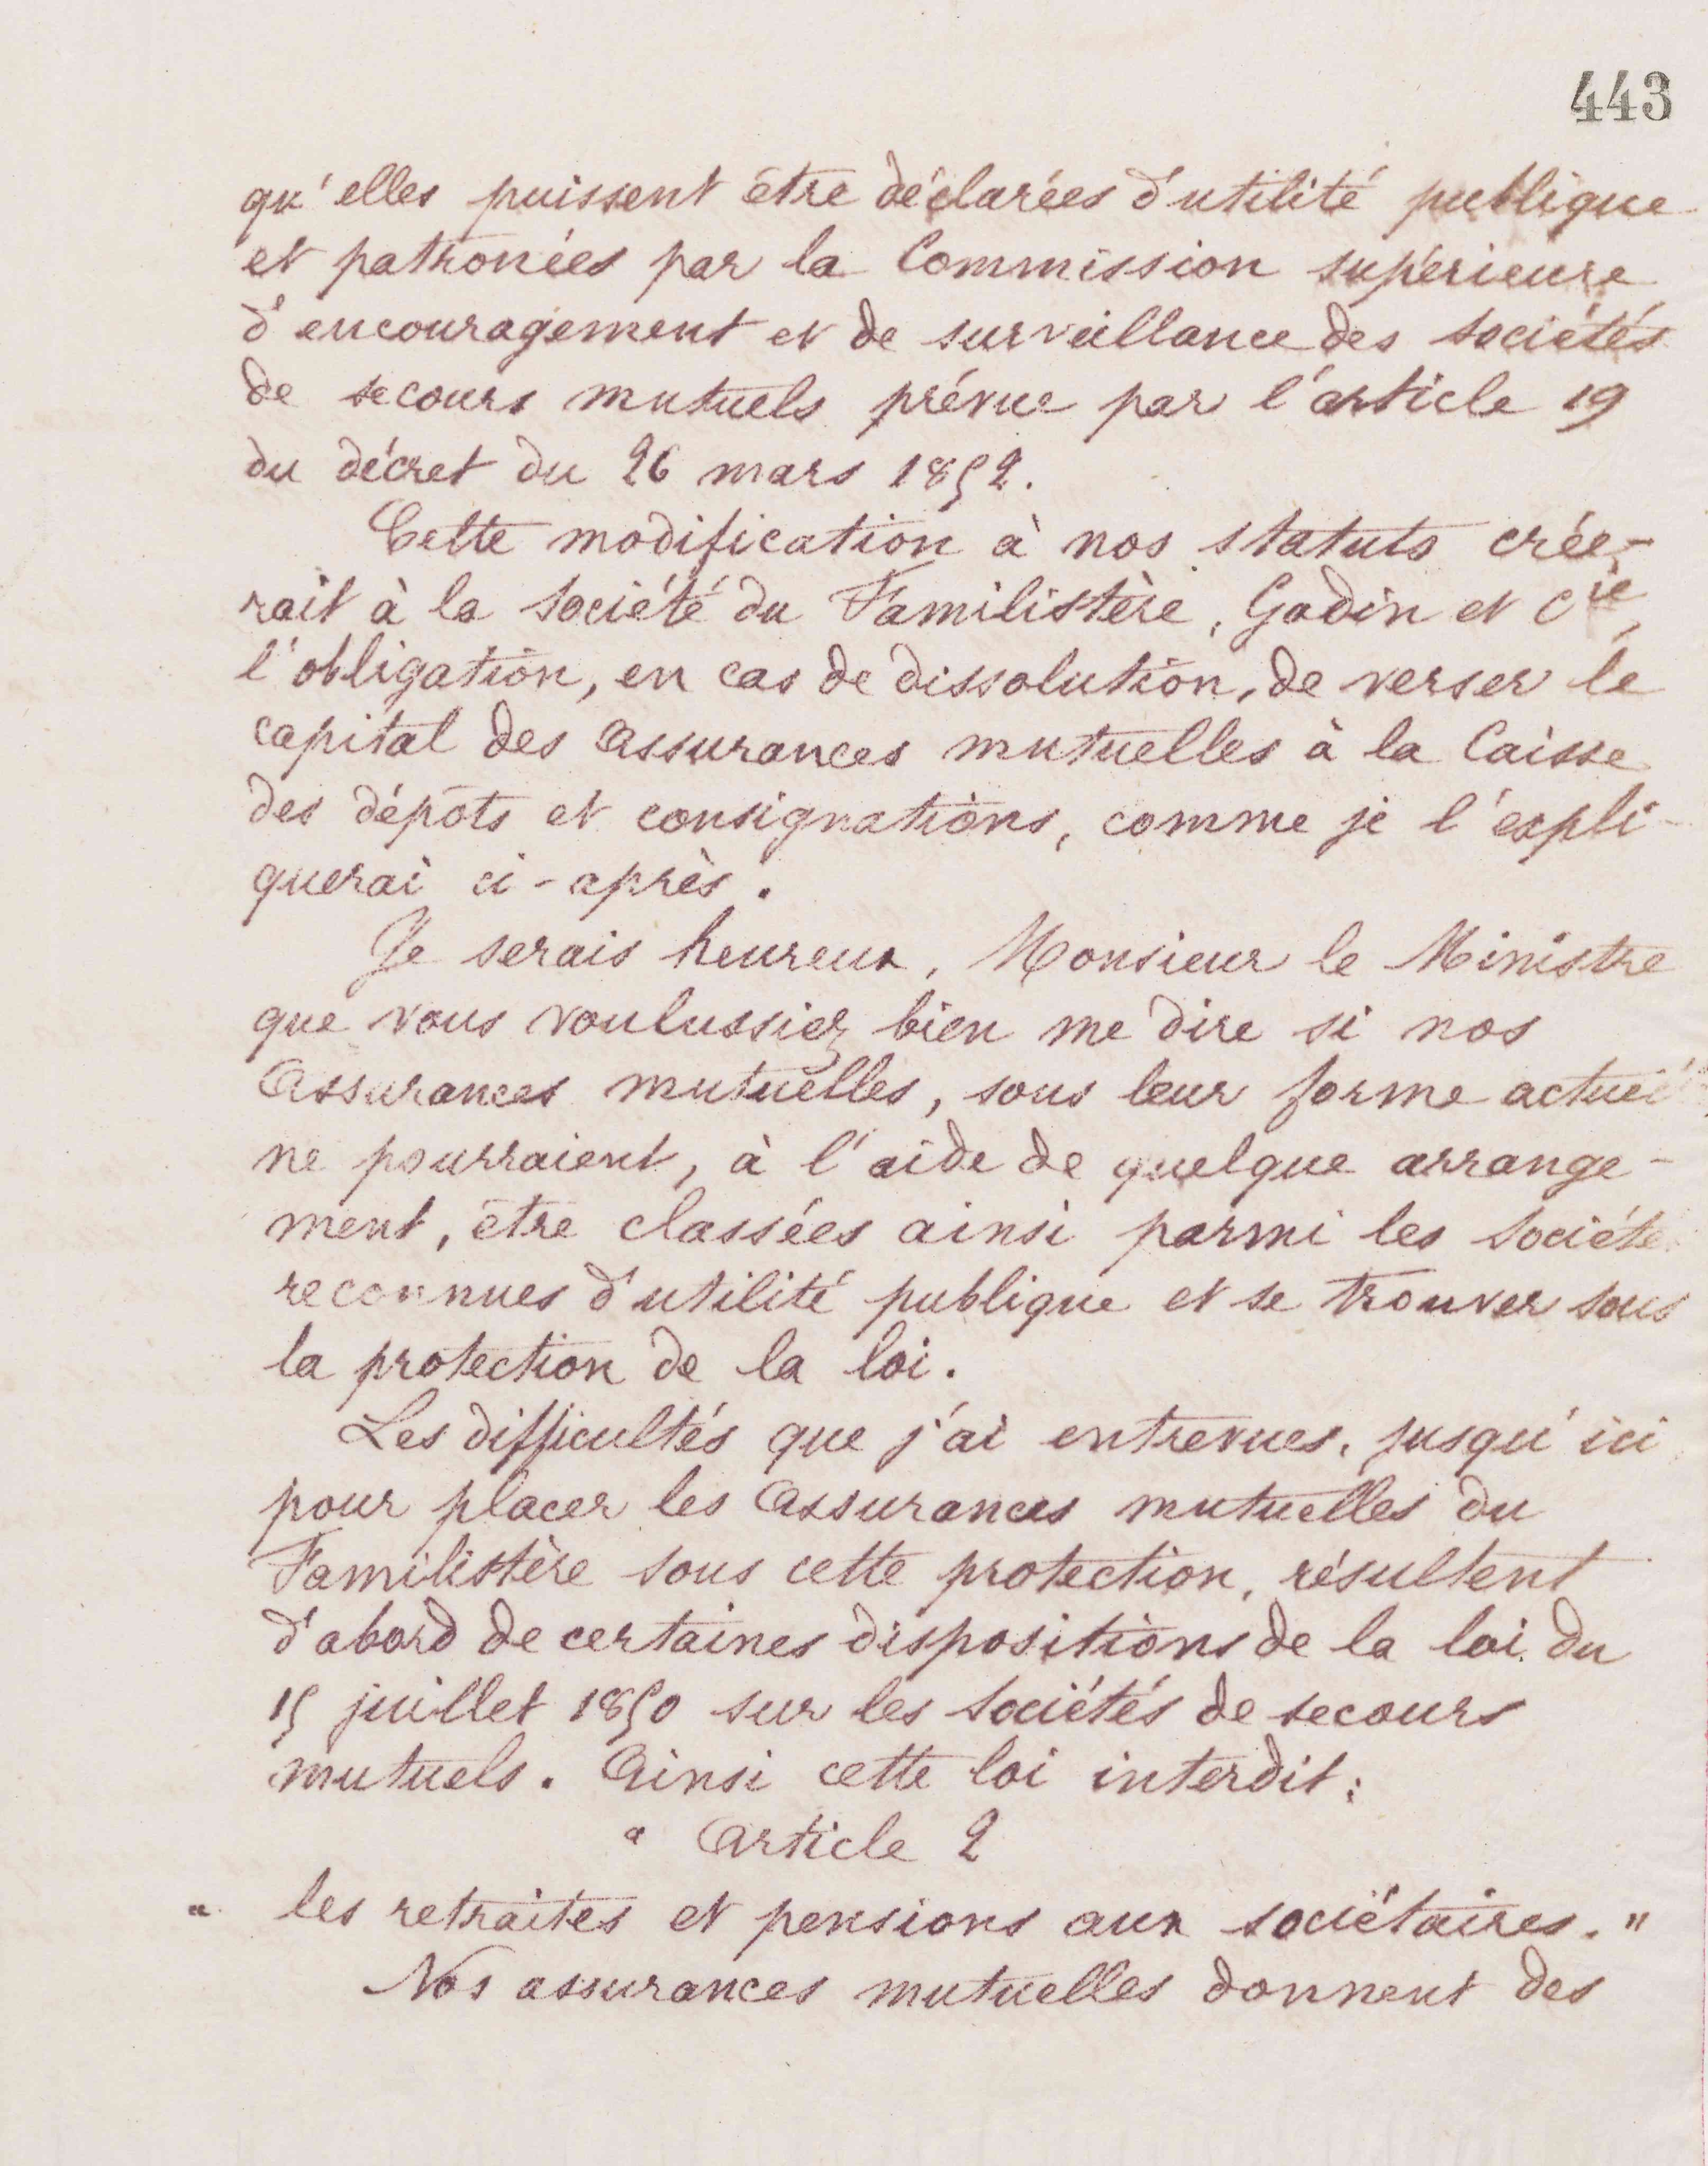 443
qu'elles puissent être déclarées d'utilité publique
et patronées par la Commission supérieure
d'encouragement et de surveillance des sociétés
de secours mutuels prévue par l'article 19
du décret du 26 mars 1852.
Cette modification à nos statuts crée-
rait à la Société du Familistère, Godin et Cie,
l'obligation, en cas de dissolution, de verser le
capital des Assurances mutuelles à la Caisse
des dépôts et consignations, comme je l'expli-
querai ci-après.
Je serais heureux, Monsieur le Ministre
que vous voulussiez bien me dire si nos
Assurances mutuelles, sous leur forme
ne pourraient, à l'aide de quelque arrange-
ment, être classées ainsi parmi les Société
reconnues d'utilité publique et se trouver sous
la protection de la loi.
Les difficultés que j'ai entrevues, jusqu'ici
pour placer les Assurances mutuelles du
Familistère sous cette protection, résultent
d'abord de certaines dispositions de la loi du
15 juillet 1850 sur les Sociétés de secours
mutuels. Ainsi cette loi interdit:
" Article 2
" les retraites et pensions aux sociétaires. "
Nos assurances mutuelles donnent des